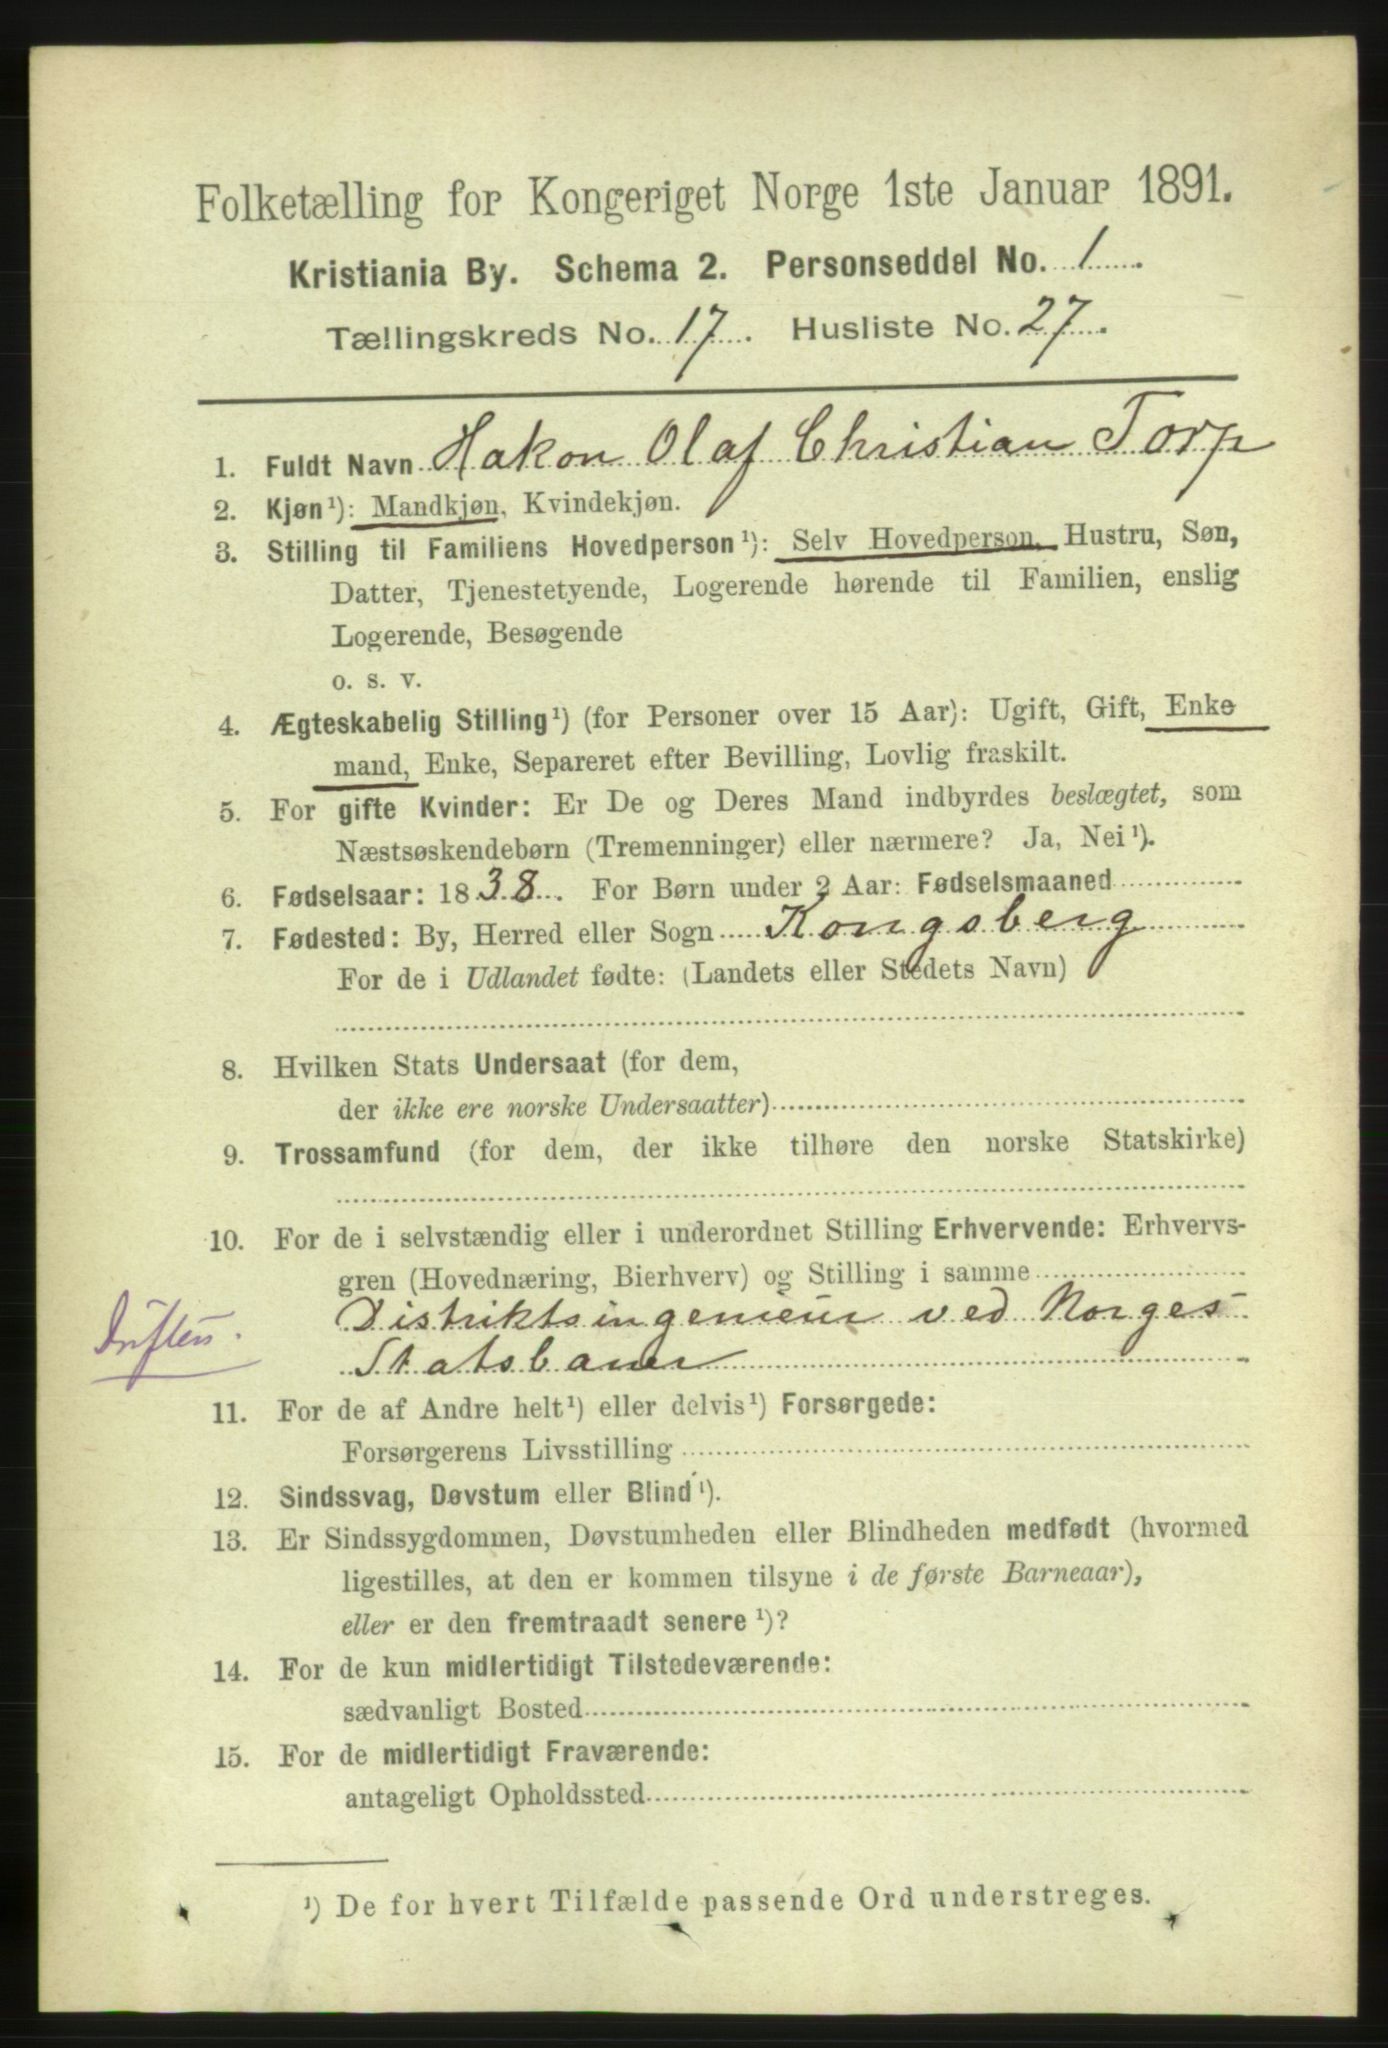 Folketælling for Kongeriget Norge 1ste Januar 1891.
Kristiania By. Schema 2. Personseddel No. 1
Tællingskreds No. 17. Husliste No. 27.
1. Fuldt Navn Hakon Olaf Christian Torp
2. Kjøn¹): Mandkjøn, Kvindekjøn.
3. Stilling til Familiens Hovedperson¹): Selv Hovedperson, Hustru, Søn,
Datter, Tjenestetyende, Logerende hørende til Familien, enslig
Logerende, Besøgende
o. s. v.
4. Ægteskabelig Stilling¹) (for Personer over 15 Aar): Ugift, Gift, Enke
mand, Enke, Separeret efter Bevilling, Lovlig fraskilt.
5. For gifte Kvinder: Er De og Deres Mand indbyrdes beslægtet, som
Næstsøskendebørn (Tremenninger) eller nærmere? Ja, Nei¹).
6. Fødselsaar: 1838. For Børn under 2 Aar: Fødselsmaaned
7. Fødested: By, Herred eller Sogn Kongsberg
For de i Udlandet fødte: (Landets eller Stedets Navn)
8. Hvilken Stats Undersaat (for dem,
der ikke ere norske Undersaatter)
9. Trossamfund (for dem, der ikke tilhøre den norske Statskirke)
10. For de i selvstændig eller i underordnet Stilling Erhvervende: Erhvervs-
gren (Hovednæring, Bierhverv) og Stilling i samme
Distriktsingenieur ved Norges
Driften.
Statsbaner
11. For de af Andre helt¹) eller delvis¹) Forsørgede:
Forsørgerens Livsstilling
12. Sindssvag, Døvstum eller Blind¹).
13. Er Sindssygdommen, Døvstumheden eller Blindheden medfødt (hvormed
ligestilles, at den er kommen tilsyne i de første Barneaar),
eller er den fremtraadt senere¹)?
14. For de kun midlertidigt Tilstedeværende:
sædvanligt Bosted
15. For de midlertidigt Fraværende:
antageligt Opholdssted
¹) De for hvert Tilfælde passende Ord understreges.